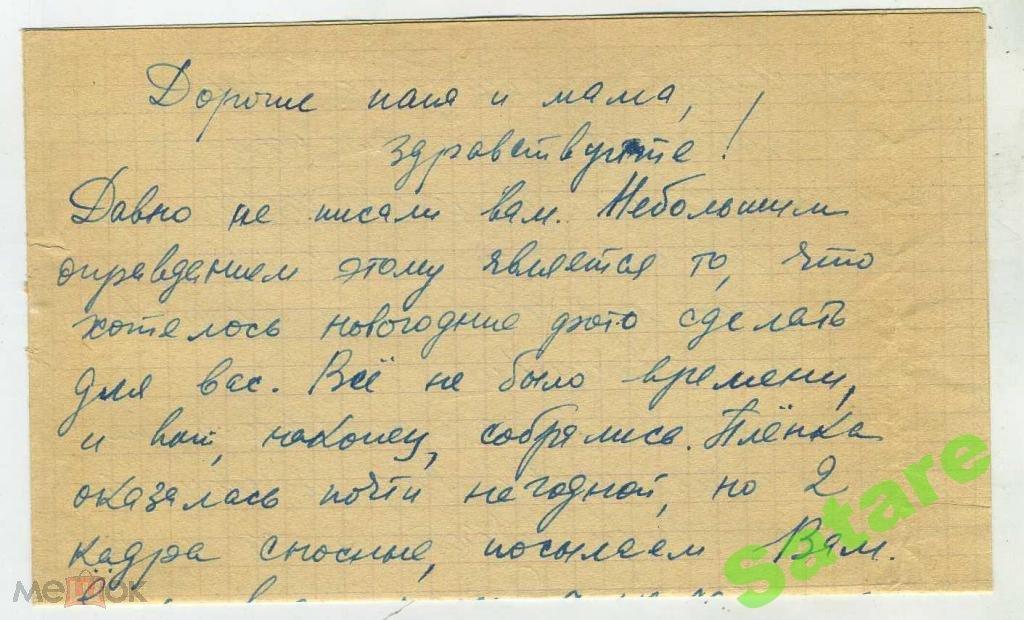 Дорогие папа и мама,
здравствуйте!
Давно не писали вам. Небольшим
оправданием этому является то, что
хотелось новогодние фото сделать
для вас. Всё не было времени,
и вот, наконец, собрались. Плёнка
оказалась почти негодной, но 2
кадра сносные, посылаем Вам.
Satare
мешок